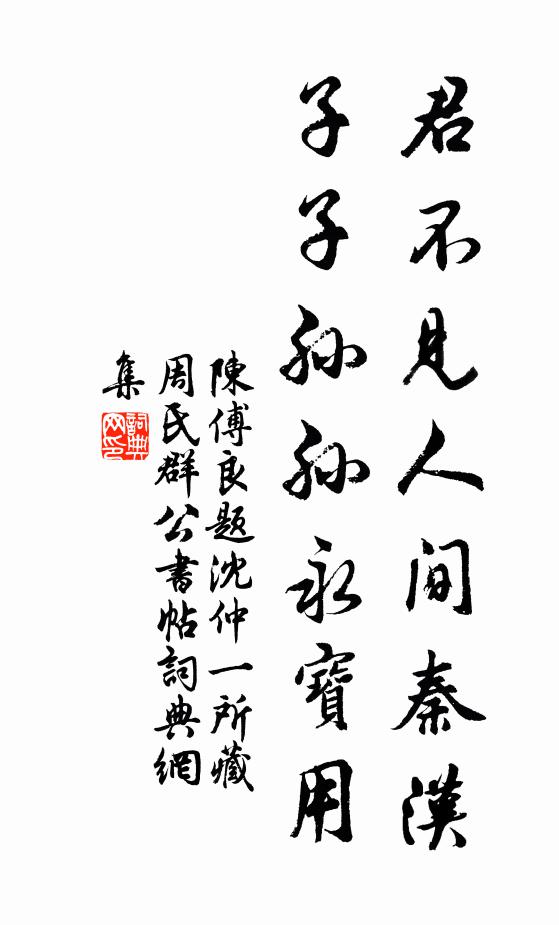 君不見人間秦漢
子子孫孫永寶用
陳傅良題沈仲一所藏
周氏群公書帖詞典網
集
詞典
网印